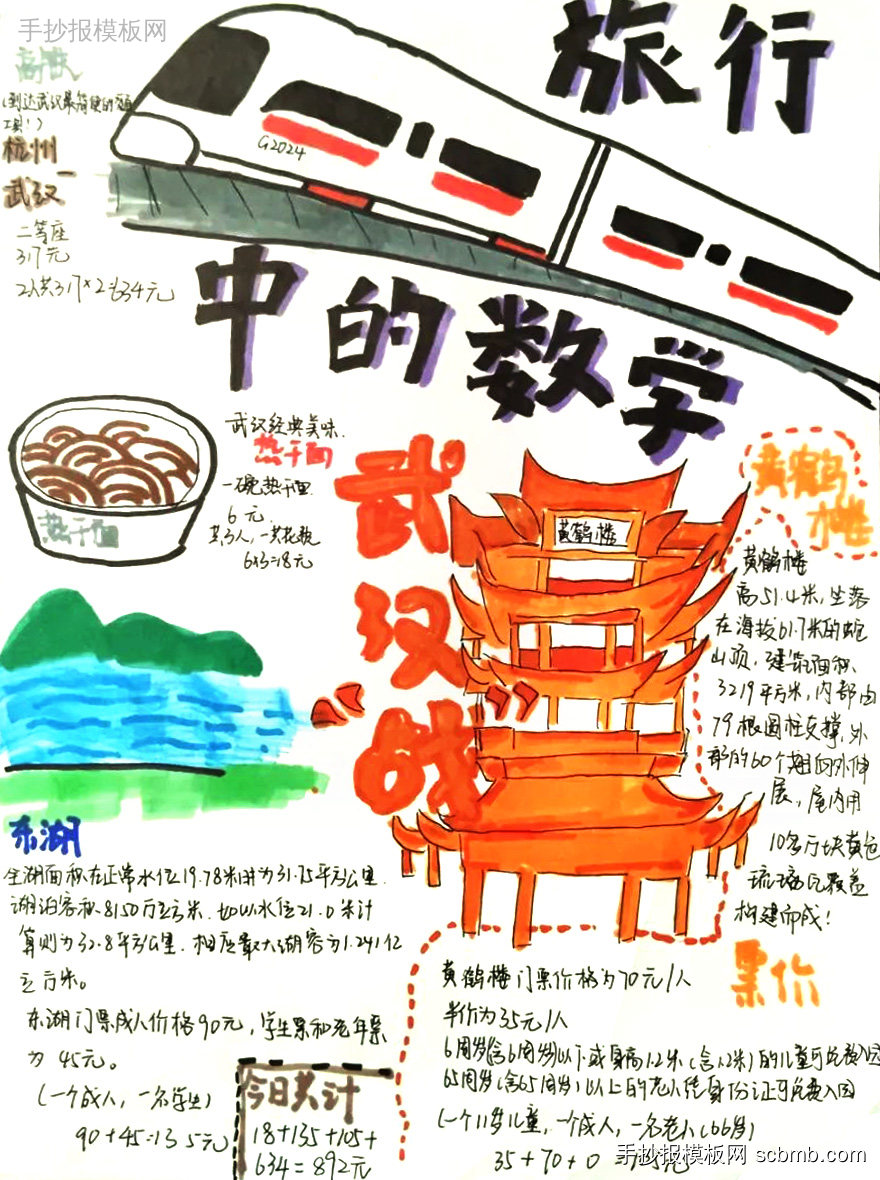 手抄报模板网
旅行
高铁
(到达武汉最简便的交通
工具!)
杭州-
武汉
G2024
二等座
317元
2人共317×2=634元
中的数学
武汉经典美味.
热干面
一碗热干面
6元
共3人,一共花费
6×3=18元
热干面
武汉"战"
黄鹤楼
黄鹤楼
黄鹤楼
高51.4米,坐落
在海拔61.7米的蛇
山顶,建筑面积
3219平方米,内部由
79根圆柱支撑,外
部的60个翘角外伸
展,屋内用
10多万块黄色
琉璃瓦覆盖
构建而成!
东湖
全湖面积在正常水位19.78米时为31.75平方公里
湖泊容积8150万立方米.如以水位21.0米计
算则为32.8平方公里.相应最大湖容为1.241亿
立方米。
东湖门票成人价格90元,学生票和老年票
为45元。
(一个成人,一名学生)
90+45=135元
今日共计
18+135+105+
634=892元
票价
黄鹤楼门票价格为70元/1人
半价为35元/1人
6周岁(含6周岁)以下或身高1.2米(含1.2米)的儿童可免费入园
65周岁(含65周岁)以上的老人凭身份证可免费入园
(一个11岁儿童,一个成人,一名老人(66岁)
35+70+0=105元
手抄报模板网 scbmb.com